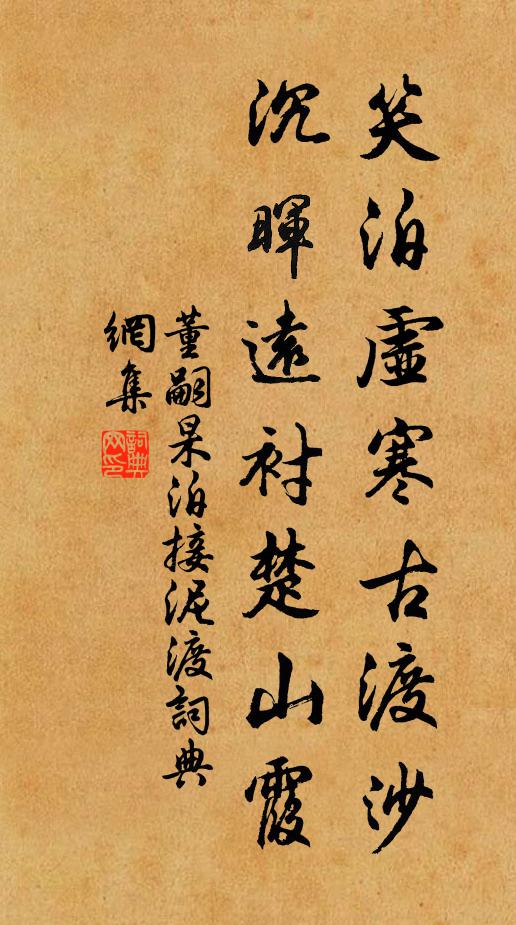 笑泊虛寒古渡沙
沉暉遠衬楚山霞
董嗣杲泊接泥渡詞典
網集
詞典
网印